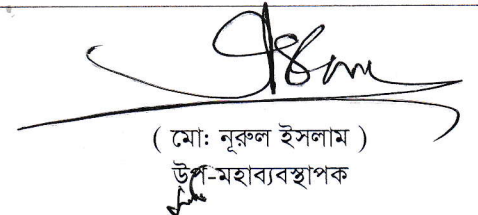 ( মো: নূরুল ইসলাম )
উপ-মহাব্যবস্থাপক